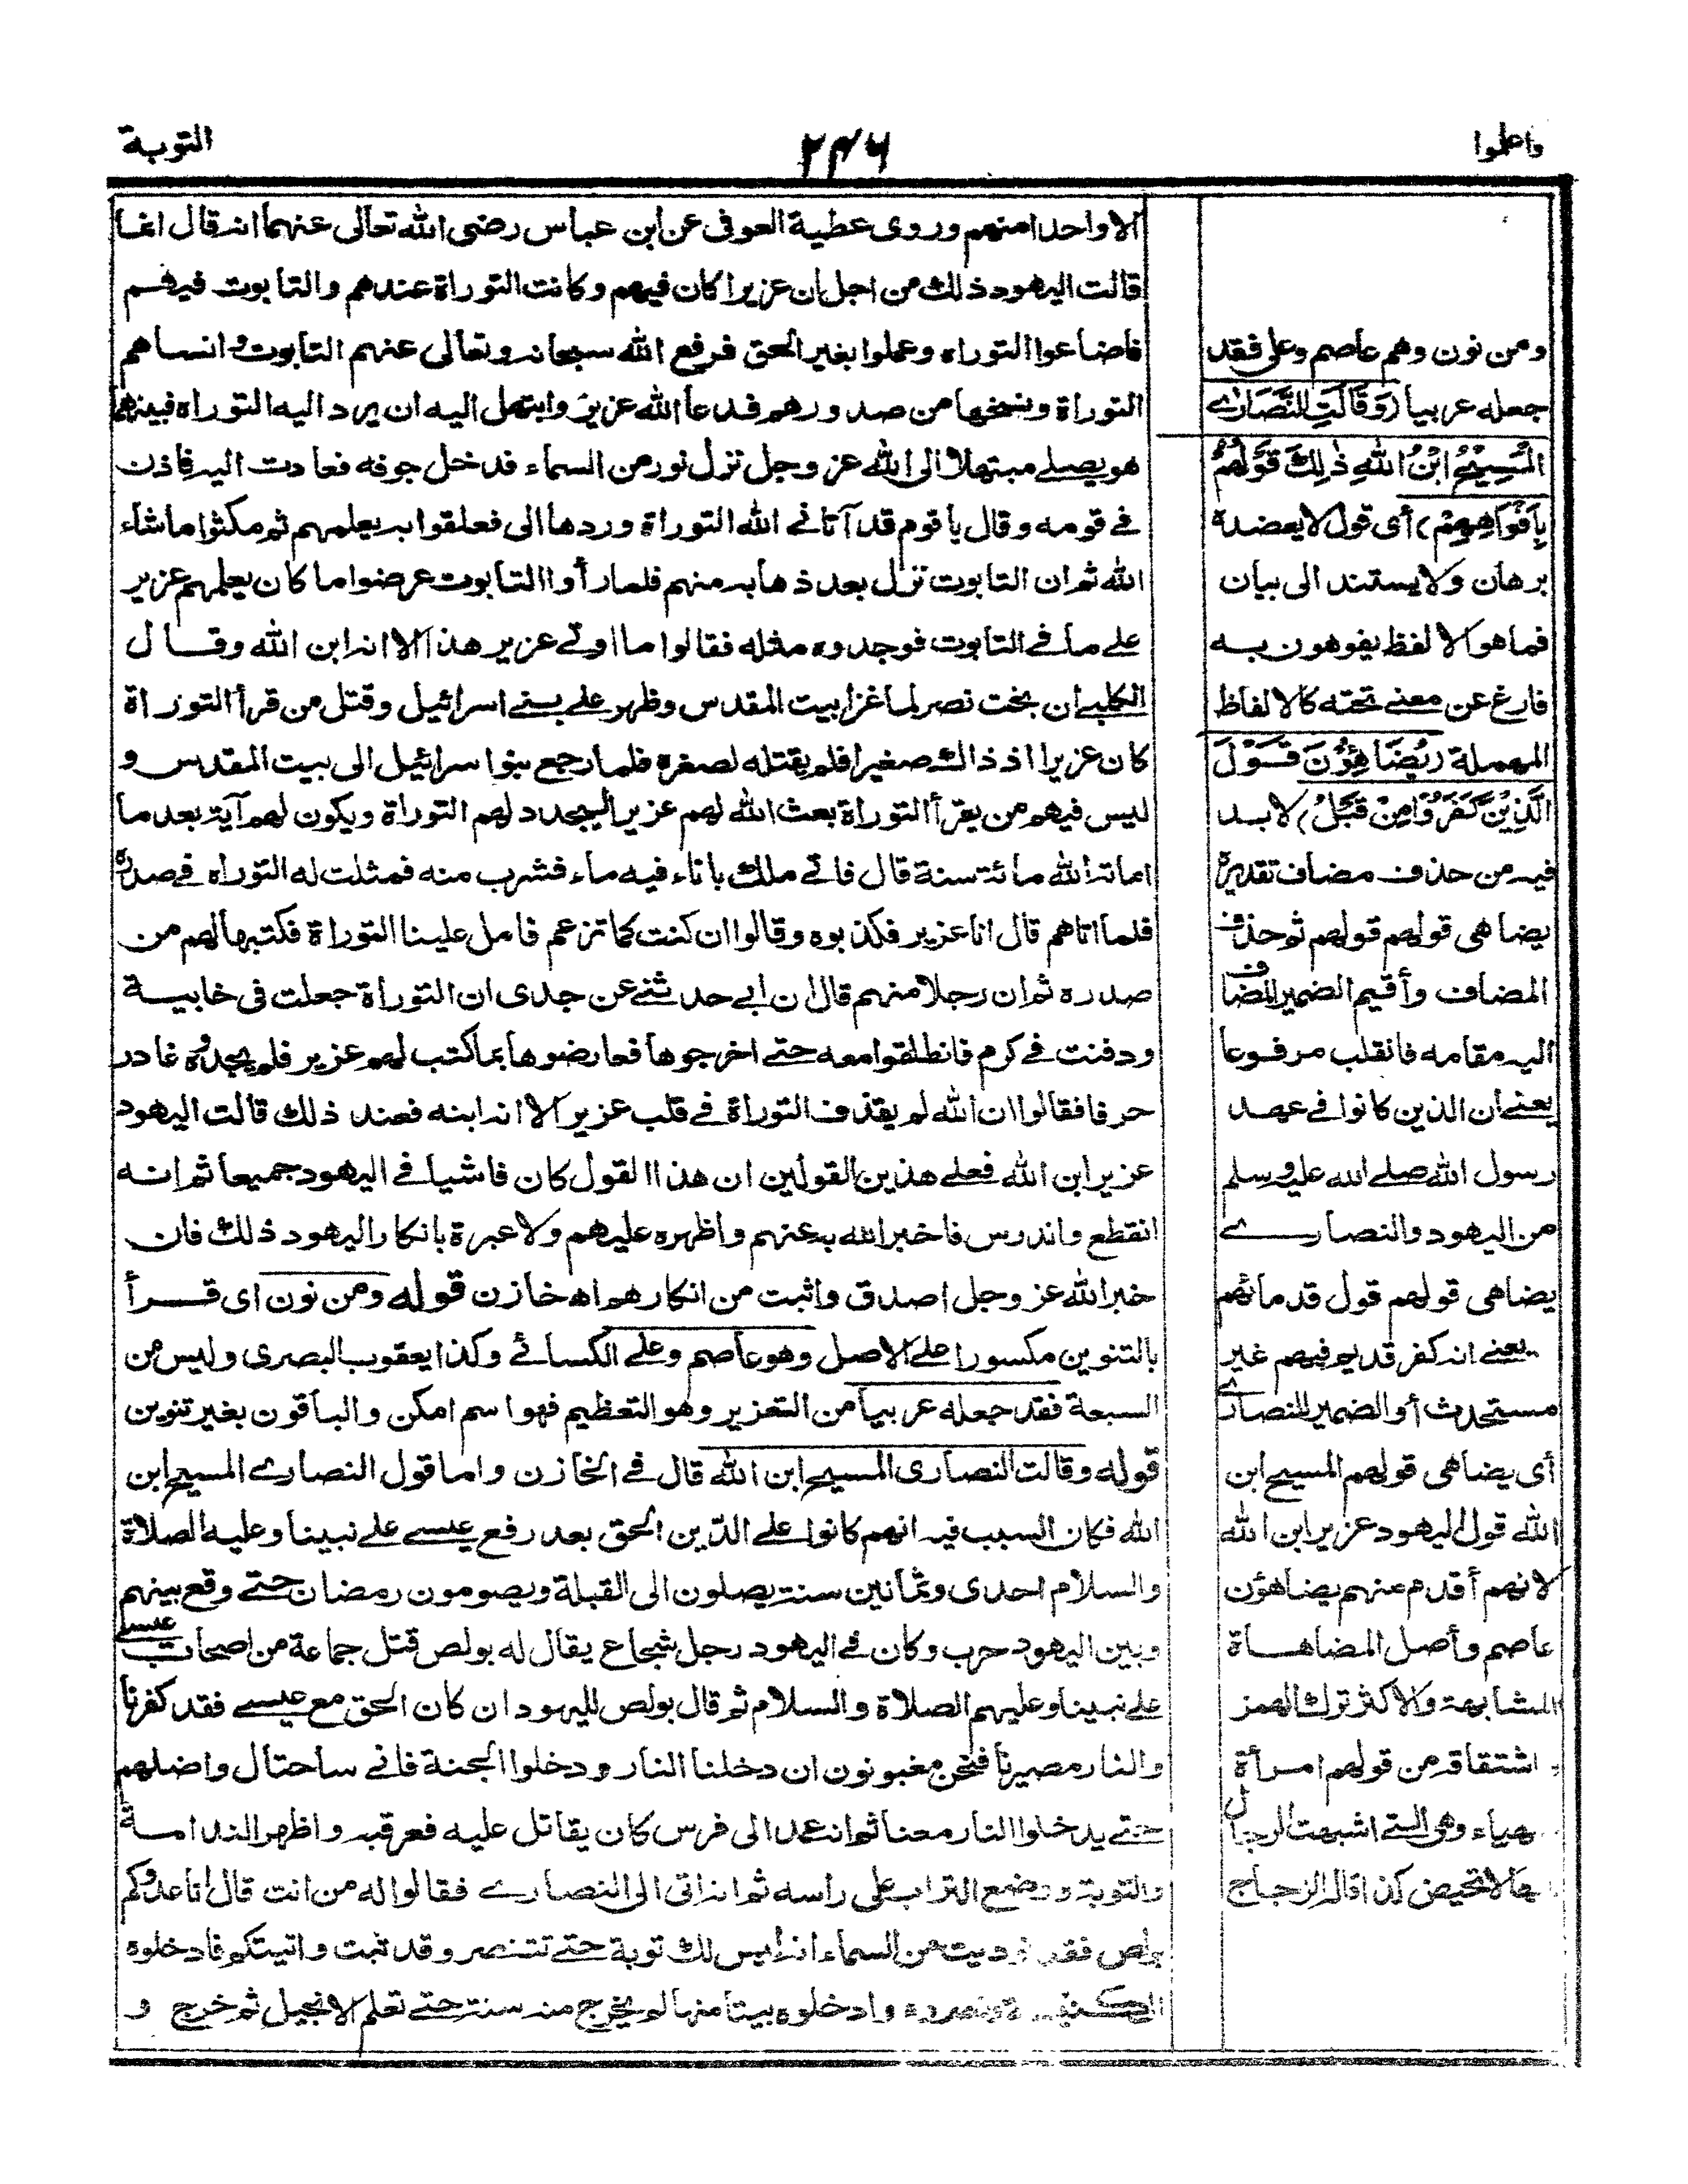 واعلموا
٢٤٦
التوبة
ومن نون وهم عاصم وعلى فقد
جعله عربيا (وَقَالَتِ النَّصَارٰى
الْمَسِيْحُ ابْنُ اللّٰهِ ذٰلِكَ قَوْلُهُمْ
بِاَفْوَاهِهِمْ) أى قول لا يعضده
برهان ولا يستند الى بيان
فما هو الا لفظ يفوهون به
فارغ عن معنى تحته كالالفاظ
المهملة (يُضَاهِؤُنَ قَوْلَ
الَّذِيْنَ كَفَرُوْا مِنْ قَبْلُ) لا بد
فيه من حذف مضاف تقديره
يضاهى قولهم قولهم ثم حذف
المضاف وأقيم الضمير المضاف
اليه مقامه فانقلب مرفوعا
يعنى ان الذين كانوا فى عهد
رسول الله صلى الله عليه وسلم
من اليهود والنصارى
يضاهى قولهم قول قدمائهم
يعنى انه كفر قديم فيهم غير
مستحدث أو الضمير للنصارى
أى يضاهى قولهم المسيح ابن
الله قول اليهود عزير ابن الله
لانهم أقدم منهم يضاهؤن
عاصم وأصل المضاهاة
المشابهة والاكثر ترك الهمز
اشتقاقه من قولهم امرأة
ضهياء وهى التى اشبهت الرجال
بانها لا تحيض كذا قاله الزجاج
الا واحدا منهم وروى عطية العوفى عن ابن عباس رضى الله تعالى عنهما انه قال انما
قالت اليهود ذلك من اجل ان عزيرا كان فيهم وكانت التوراة عندهم والتابوت فيهم
فاضاعوا التوراة وعملوا بغير الحق فرفع الله سبحانه وتعالى عنهم التابوت وانساهم
التوراة ونسخها من صدورهم فدعا الله عزير وابتهل اليه ان يرد اليه التوراة فبينما
هو يصلى مبتهلا الى الله عز وجل نزل نور من السماء فدخل جوفه فعادت اليه فاذن
فى قومه وقال يا قوم قد آتانى الله التوراة وردها الى فعلقوا به يعلمهم ثم مكثوا ما شاء
الله ثم ان التابوت نزل بعد ذهابه منهم فلما رأوا التابوت عرضوا ما كان يعلمهم عزير
على ما فى التابوت فوجدوه مثله فقالوا ما اوتى عزير هذا الا انه ابن الله وقال
الكلبى ان بخت نصر لما غزا بيت المقدس وظهر على بنى اسرائيل وقتل من قرأ التوراة
كان عزير اذ ذاك صغيرا فلم يقتله لصغره فلما رجع بنوا اسرائيل الى بيت المقدس و
ليس فيهم من يقرأ التوراة بعث الله لهم عزيرا ليجدد لهم التوراة ويكون لهم آية بعد ما
اماته الله مائة سنة قال فاتى ملك باناء فيه ماء فشرب منه فمثلت له التوراة فى صدره
فلما اتاهم قال انا عزير فكذبوه وقالوا ان كنت كما تزعم فامل علينا التوراة فكتبها لهم من
صدره ثم ان رجلا منهم قال ان ابى حدثنى عن جدى ان التوراة جعلت فى خابية
ودفنت فى كرم فانطلقوا معه حتى اخرجوها فعارضوها بما كتب لهم عزير فلم يجدوه غادر
حرفا فقالوا ان الله لم يقذف التوراة فى قلب عزير الا انه ابنه فعند ذلك قالت اليهود
عزير ابن الله فعلى هذين القولين ان هذا القول كان فاشيا فى اليهود جميعا ثم انه
انقطع واندرس فاخبر الله به عنهم واظهره عليهم ولا عبرة بانكار اليهود ذلك فان
خبر الله عز وجل اصدق واثبت من انكارهم اه خازن قوله ومن نون اى قرأ
بالتنوين مكسورا على الاصل وهو عاصم وعلى الكسائى وكذا يعقوب البصرى وليس من
السبعة فقد جعله عربيا من التعزير وهو التعظيم فهو اسم امكن والباقون بغير تنوين
قوله وقالت النصارى المسيح ابن الله قال فى الخازن واما قول النصارى المسيح ابن
الله فكان السبب فيه انهم كانوا على الدين الحق بعد رفع عيسى على نبينا وعليه الصلاة
والسلام احدى وثمانين سنة يصلون الى القبلة ويصومون رمضان حتى وقع بينهم
وبين اليهود حرب وكان فى اليهود رجل شجاع يقال له بولص قتل جماعة من اصحاب عيسى
على نبينا وعليهم الصلاة والسلام ثم قال بولص لليهود ان كان الحق مع عيسى فقد كفرنا
والنار مصيرنا فنحن مغبونون ان دخلنا النار ودخلوا الجنة فانى ساحتال واضلهم
حتى يدخلوا النار معنا ثم انه عمد الى فرس كان يقاتل عليه فعرقبه واظهر الندامة
والتوبة ووضع التراب على راسه ثم انه اتى الى النصارى فقالوا له من انت قال انا عدوكم
بولص فقد نوديت من السماء انه ليس لك توبة حتى تتنصر وقد تبت واتيتكم فادخلوه
الكنيسة ونصروه وادخلوه بيتا منها لم يخرج منه سنة حتى تعلم الانجيل ثم خرج و